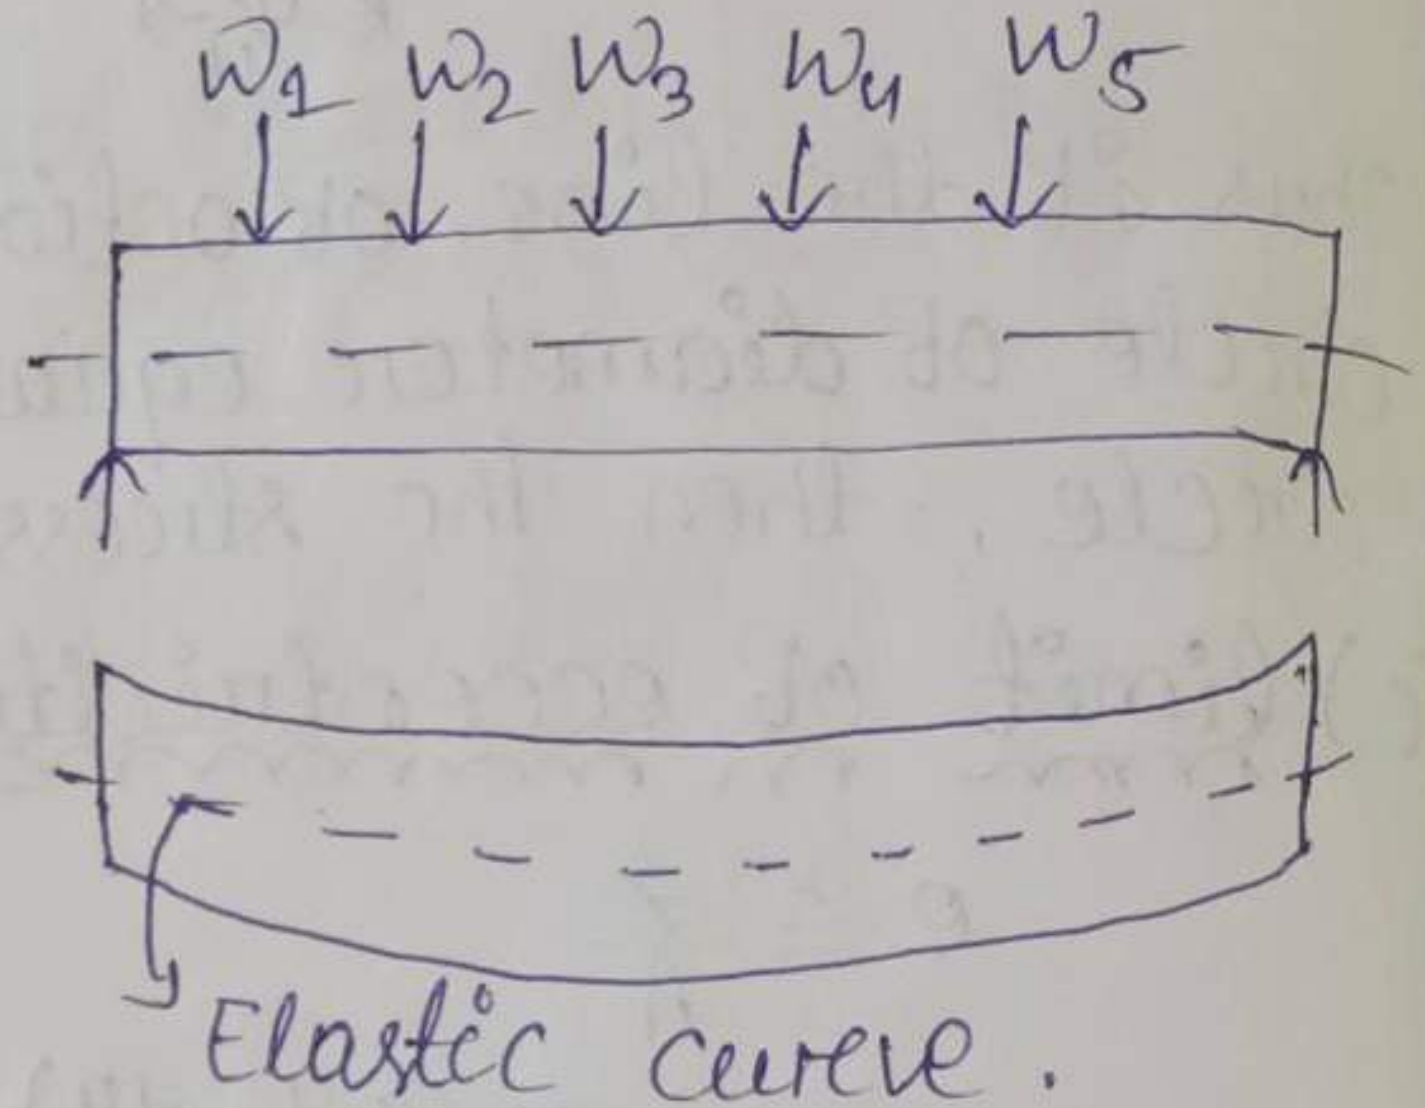 W1 W2 W3 W4 W5
Elastic cureve.